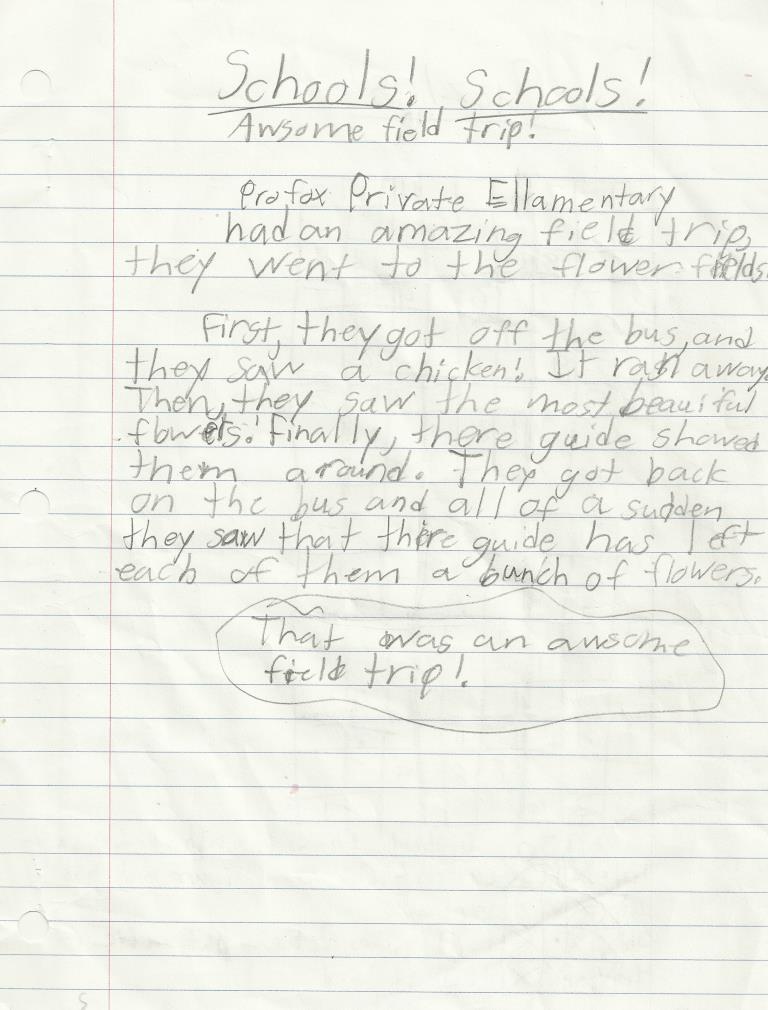 Schools! Schools!
Awsome field trip!
Profox Private Ellamentary
had an amazing field trip,
they went to the flower fields.
First, they got off the bus, and
they saw a chicken! It ran away.
Then, they saw the most beauiful
flowers! Finally, there guide showed
them around. They got back
on the bus and all of a sudden
they saw that there guide has left
each of them a bunch of flowers.
That was an awsome
field trip!